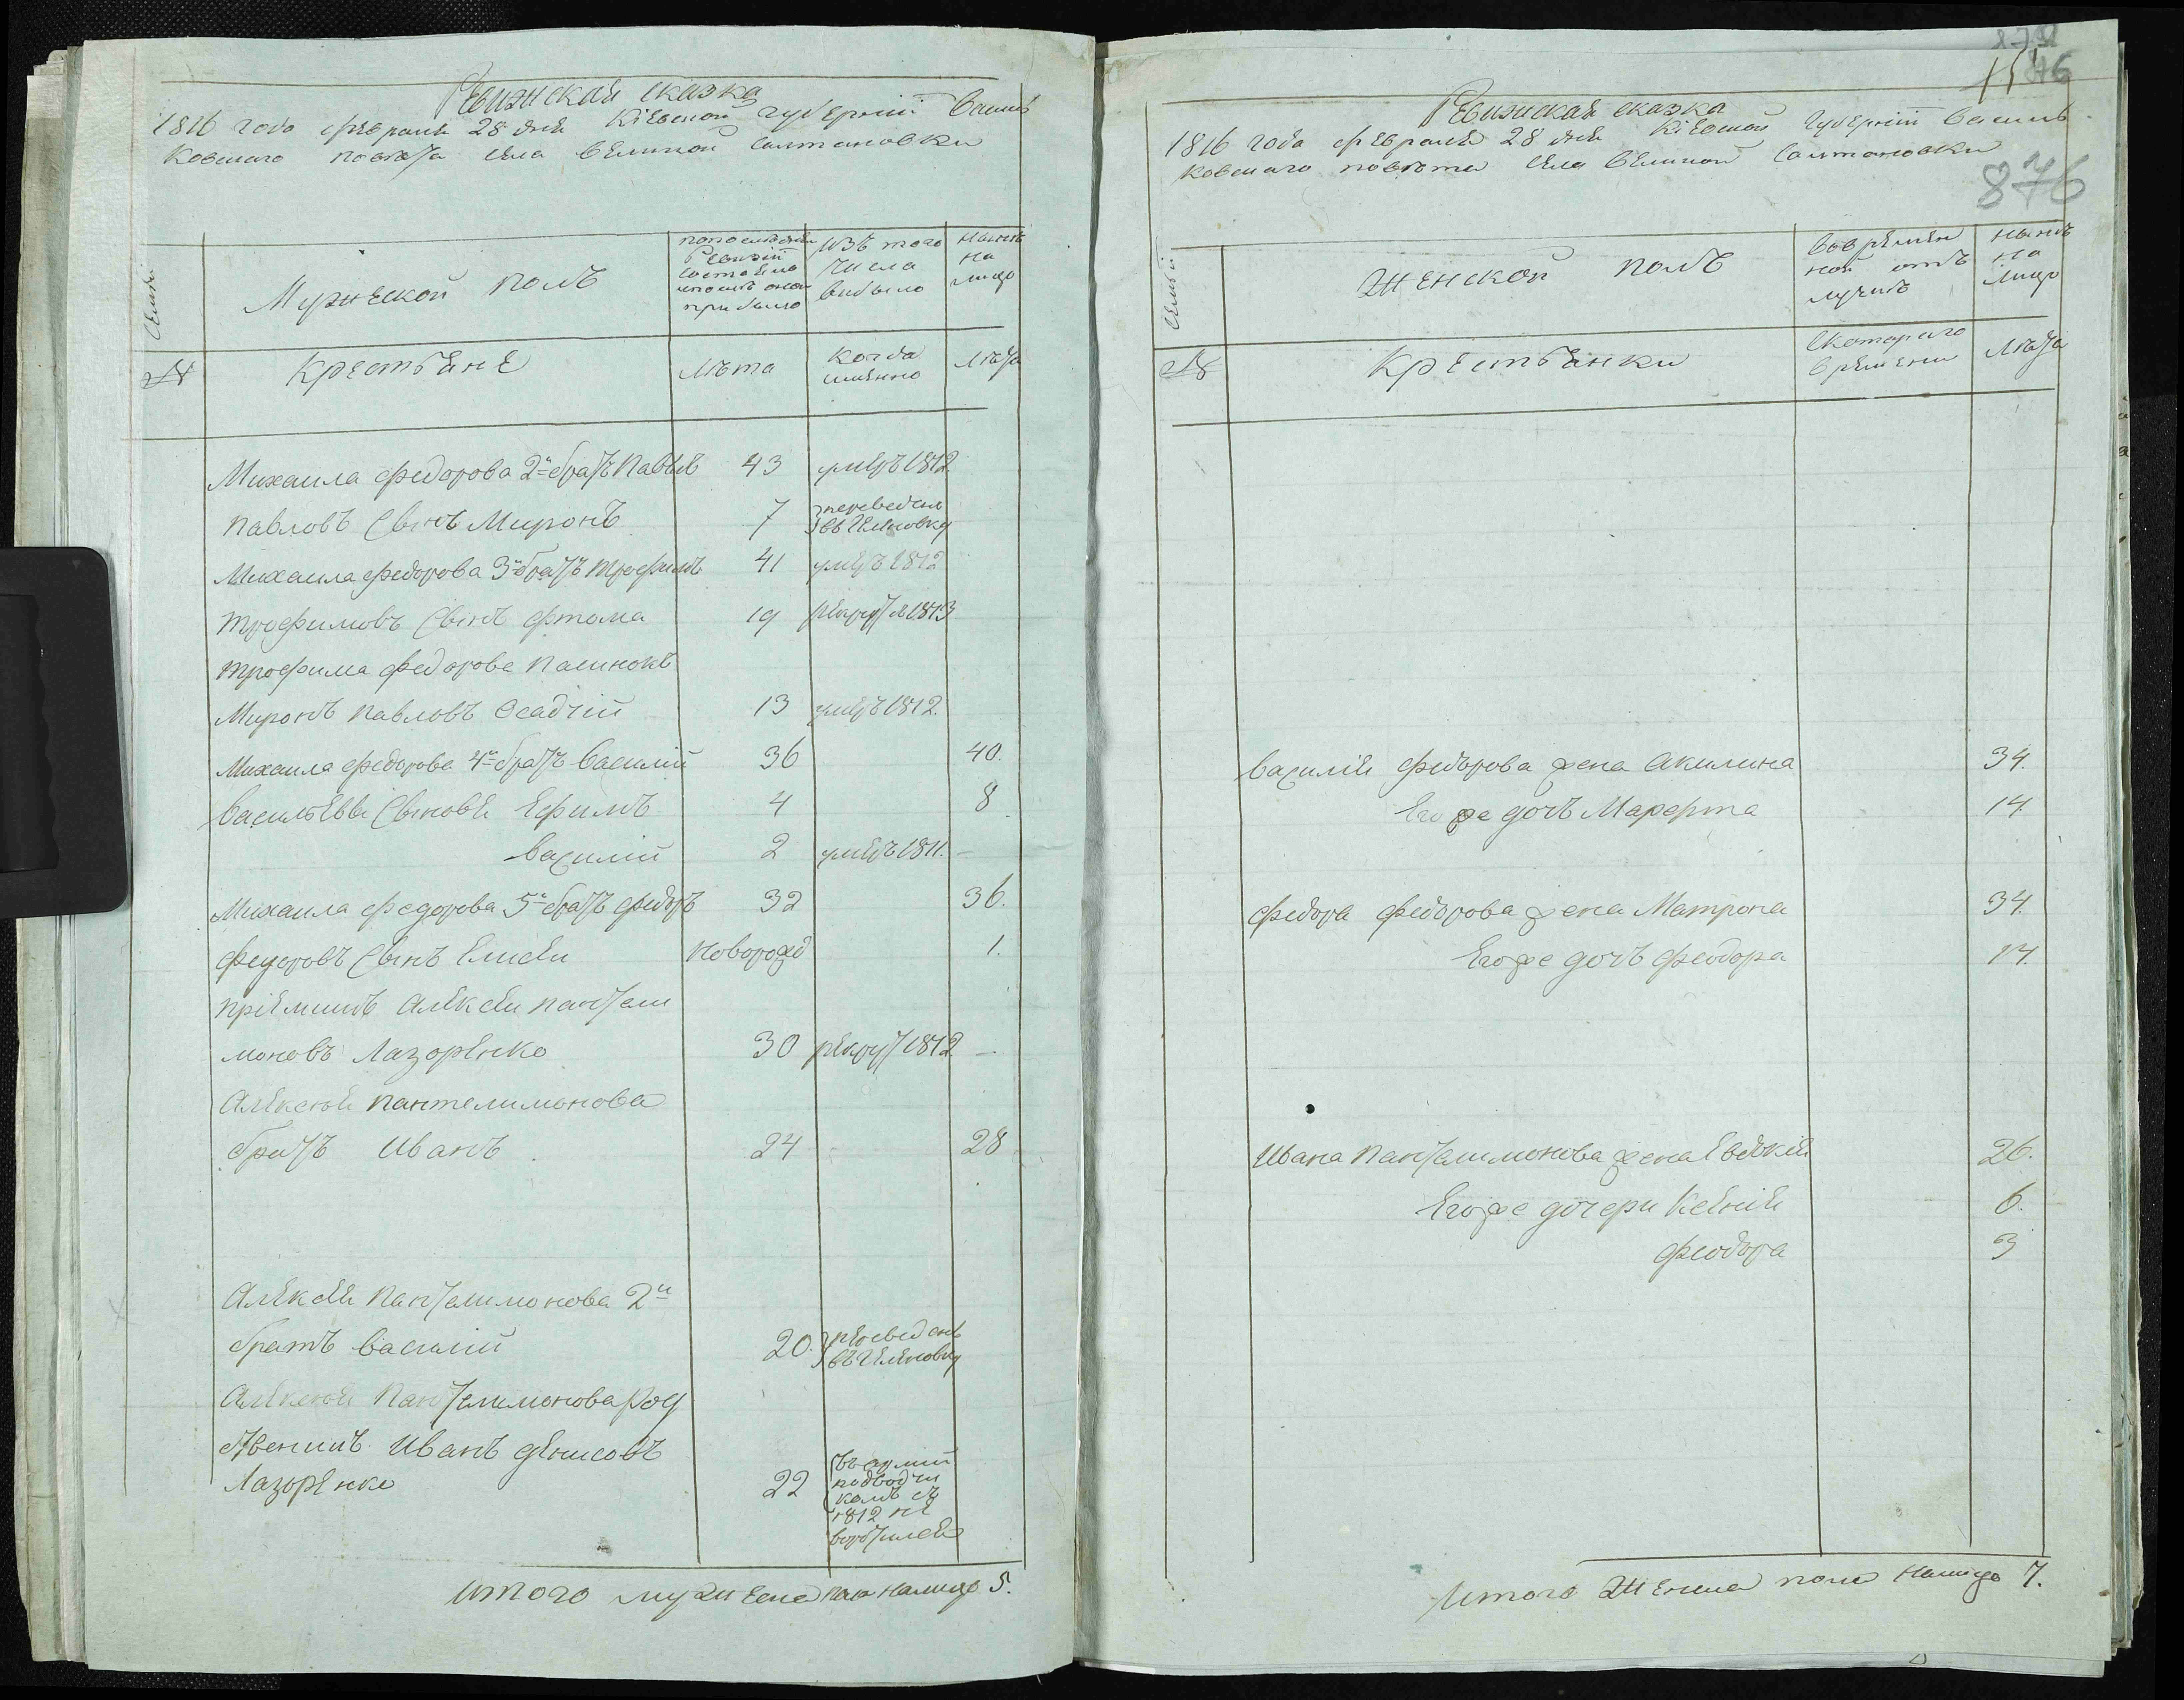 Ревизская сказка
1816 года февраля 28 дня Кіевской губерніи Василь
ковскаго повета села Великой Салтановки
Семьи
Мужеской полъ
по последней
Ревизіи
состояло
и после оной
прибыло
Изъ того
числа
выбыло
Ныне
на
лицо
№
Крестьяне
Лета
Когда
именно
Лета
Михаила Федорова 2й братъ Павелъ 43 умеръ 1812
Павловъ Сынъ Миронъ 7 переведенъ
въ Челновку
Михаила Федорова 3й братъ Трофимъ 41 умеръ 1812
Трофимовъ Сынъ Фтома 19 рекрут. 1813
Трофима Федорова Пасинокъ
Миронъ Павловъ Осадчій 13 умеръ 1812.
Михаила Федорова 4й братъ Василій 36 40.
Васильевы Сыновья Ефимъ 4 8
Василій 2 умеръ 1811.
Михаила Федорова 5й братъ Федоръ 32 36.
Федоровъ Сынъ Елисей Новорожд 1.
Пріемишъ Алексей Пантели
моновъ Лазоренко 30 рекрут 1812 —
Алексея Пантелимонова
братъ Иванъ 24 28
Алексея Пантелимонова 2й
братъ Василій 20. переведенъ
въ Челновку
Алексея Пантелимонова Род
ственикъ Иванъ Денисовъ
Лазоренко 22 въ арміи
подводчи
комъ съ
1812 не
воротился
Итого мужеска пола налицо 5.
15
876
Ревизская сказка
1816 года февраля 28 дня Кіевской Губерніи Василь
ковскаго повета села Великой Салтановки
Семьи
Женской полъ
Во времен
ной отъ
лучке
Ныне
на
лицо
№
Крестьянки
Скотораго
времени
Лета
Василія Федорова жена Акилина 34.
Его же дочь Марфта 14.
Федора Федорова жена Матрона 34.
Его же дочь Феодора 14.
Ивана Пантелимонова жена Евдокія 26.
Его же дочери Ксенія 6.
Феодора 3
Итого Женска пола налицо 7.